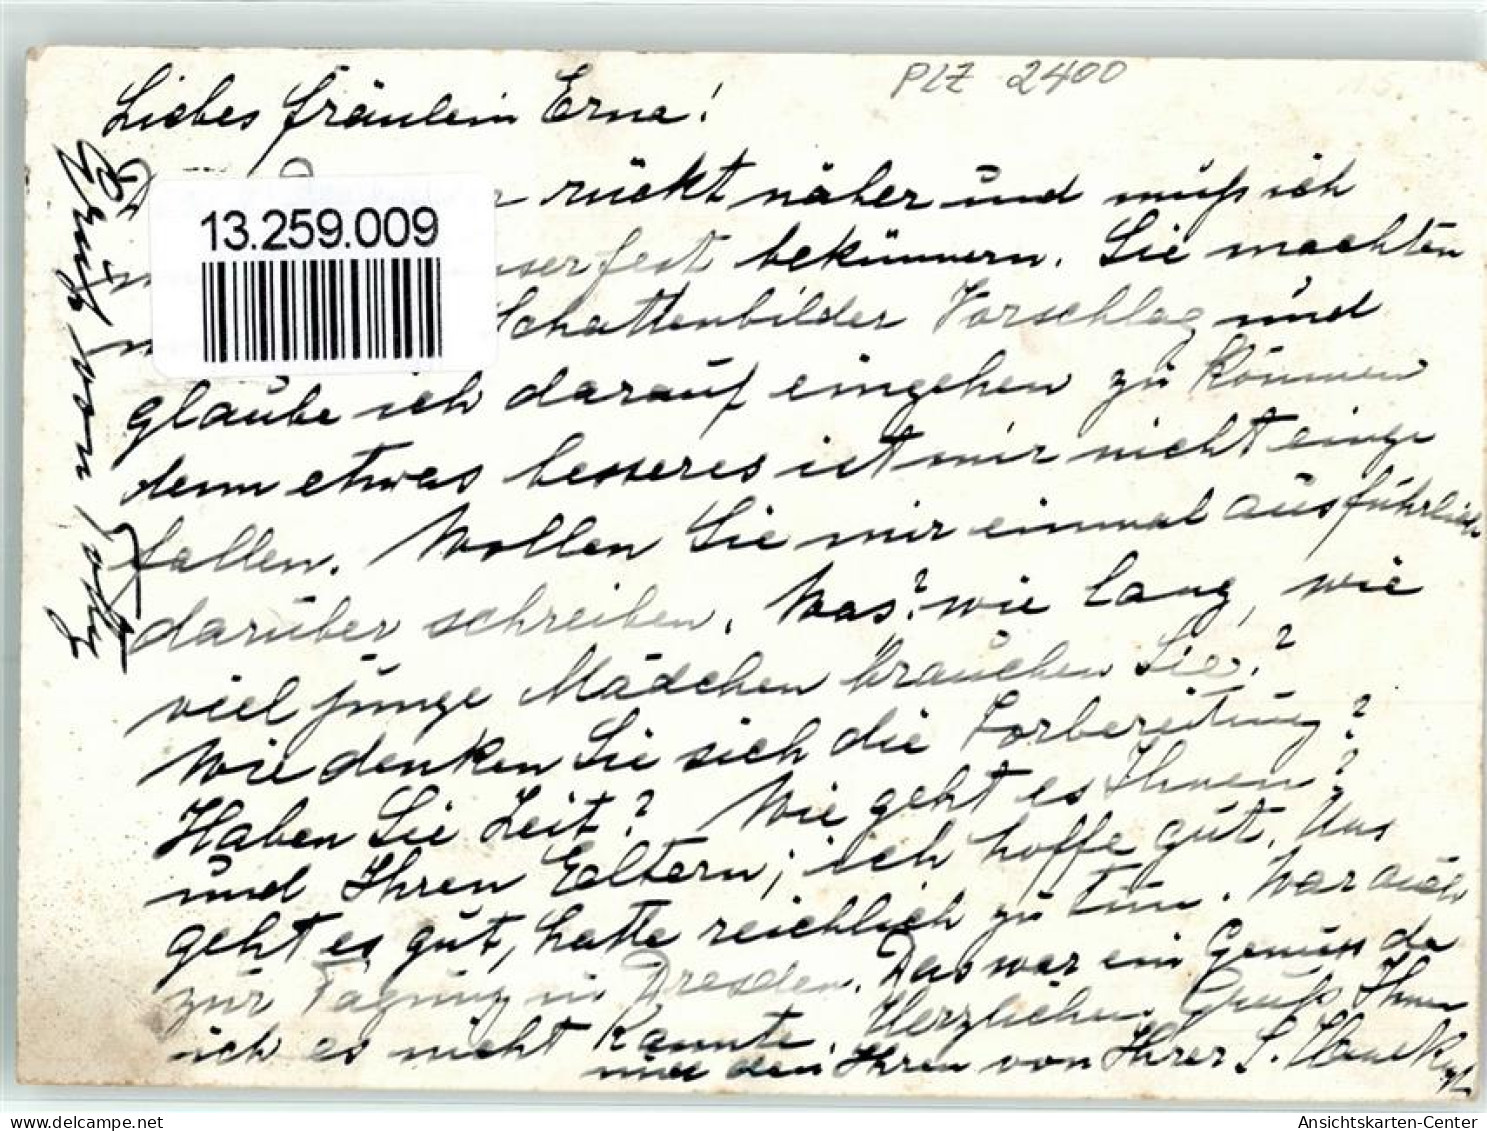 PLZ 2400
Liebes Fräulein Erna!
rückt näher und muß ich
bekümmern. Sie machten
Schattenbilder Vorschlag und
glaube ich darauf eingehen zu können
denn etwas besseres ist mir nicht einge
fallen. Wollen Sie mir einmal ausführlich
darüber schreiben. Was? wie lang, wie
viel junge Mädchen brauchen Sie?
Wie denken Sie sich die Vorbereitung?
Haben Sie Zeit? Wie geht es Ihnen?
und Ihren Eltern; ich hoffe gut. Uns
geht es gut, hatte reichlich zu tun. War auch
zur Tagung in Dresden. Das war ein Genuss da
ich es nicht kannte. Herzlichen Gruß Ihnen
und den Ihren von Ihrer S.
Gruß von
13.259.009
www.delcampe.net
Ansichtskarten-Center